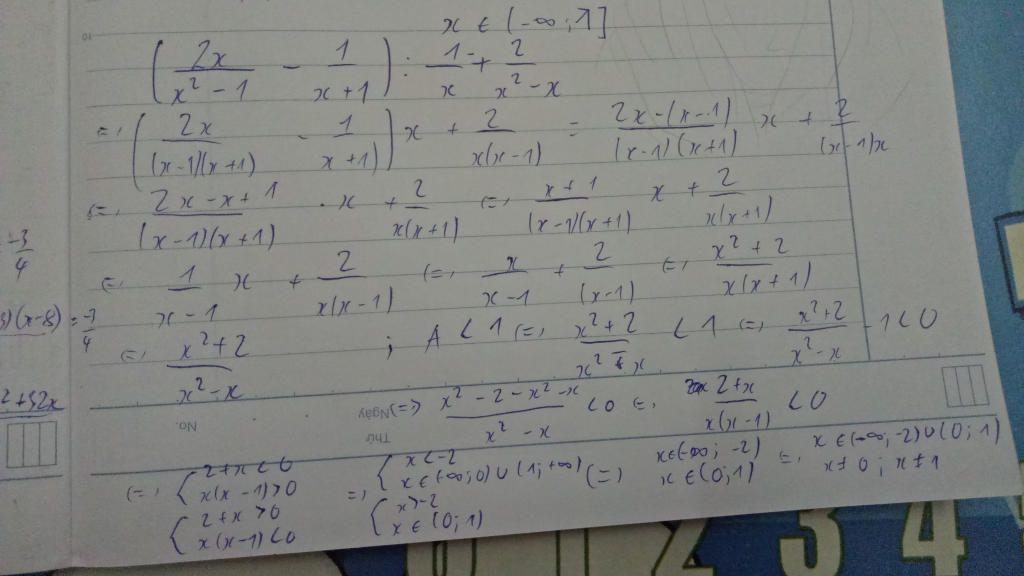 x ∈ (-∞; 1]
(2x/(x² - 1) - 1/(x+1)) : 1/x + 2/(x² - x)
(=, (2x/((x-1)(x+1)) - 1/(x+1)) x + 2/(x(x-1)) = (2x-(x-1))/((x-1)(x+1)) x + 2/((x-1)x)
(=, (2x-x+1)/((x-1)(x+1)) . x + 2/(x(x+1)) (=, (x+1)/((x-1)(x+1)) x + 2/(x(x+1))
(=, 1/(x-1) x + 2/(x(x-1)) (=, x/(x-1) + 2/(x-1) (=, (x²+2)/(x(x+1))
(=, (x²+2)/(x²-x) ; A < 1 (=, (x²+2)/(x² - x) < 1 (=, (x²+2)/(x²-x) - 1 < 0
(=) (x² - 2 - x² - x)/(x² - x) < 0 =, (2+x)/(x(x-1)) < 0
(=, { 2+x < 0 =, { x < -2 (=) x ∈ (-∞; -2) =, x ∈ (-∞; -2) ∪ (0; 1)
x(x-1) > 0 x ∈ (-∞; 0) ∪ (1; +∞) x ∈ (0; 1) x ≠ 0 ; x ≠ 1
{ 2+x > 0 { x > -2
x(x-1) < 0 x ∈ (0; 1)
-3/4
(x-8) = -7/4
2+32x
No.
Thứ
Ngày
0 1 2 3 4